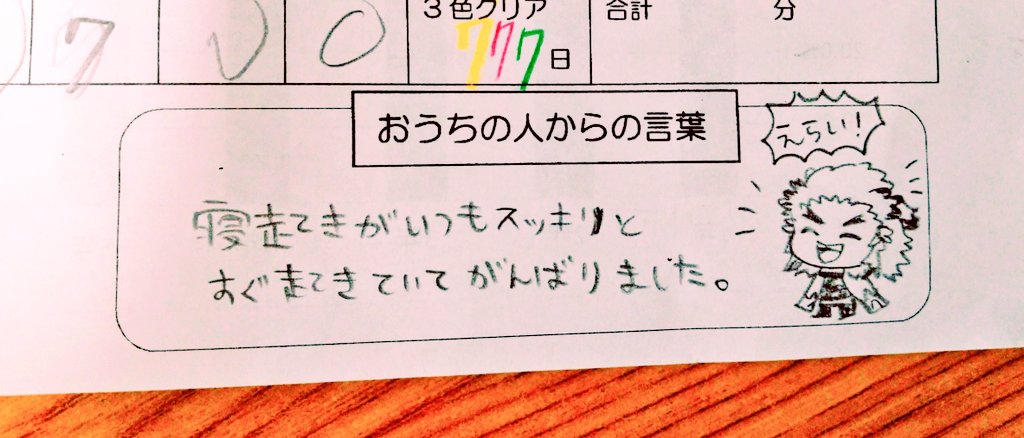 3色クリア
合計
分
7
0
777日
おうちの人からの言葉
えらい！
寝起きがいつもスッキリと
すぐ起きていてがんばりました。